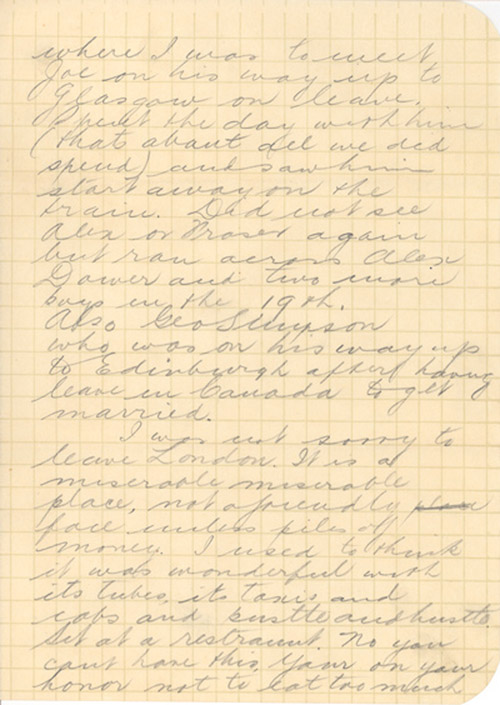 where I was to meet
Joe on his way up to
Glasgow on leave.
Spent the day with him
(thats about all we did
spend) and saw him
start away on the
train. Did not see
Alex or Fraser again
but ran across Alex
Dower and two more
boys in the 19th.
Also Geo Simpson
who was on his way up
to Edinburgh after having
leave in Canada to get
married.
I was not sorry to
leave London. It is a
miserable miserable
place, not a friendly
face unless piles of
money. I used to think
it was wonderful with
its tubes, its taxis and
cabs and bustle and hustle.
Sit at a restraunt. No you
cant have this. Your on your
honor not to eat too much